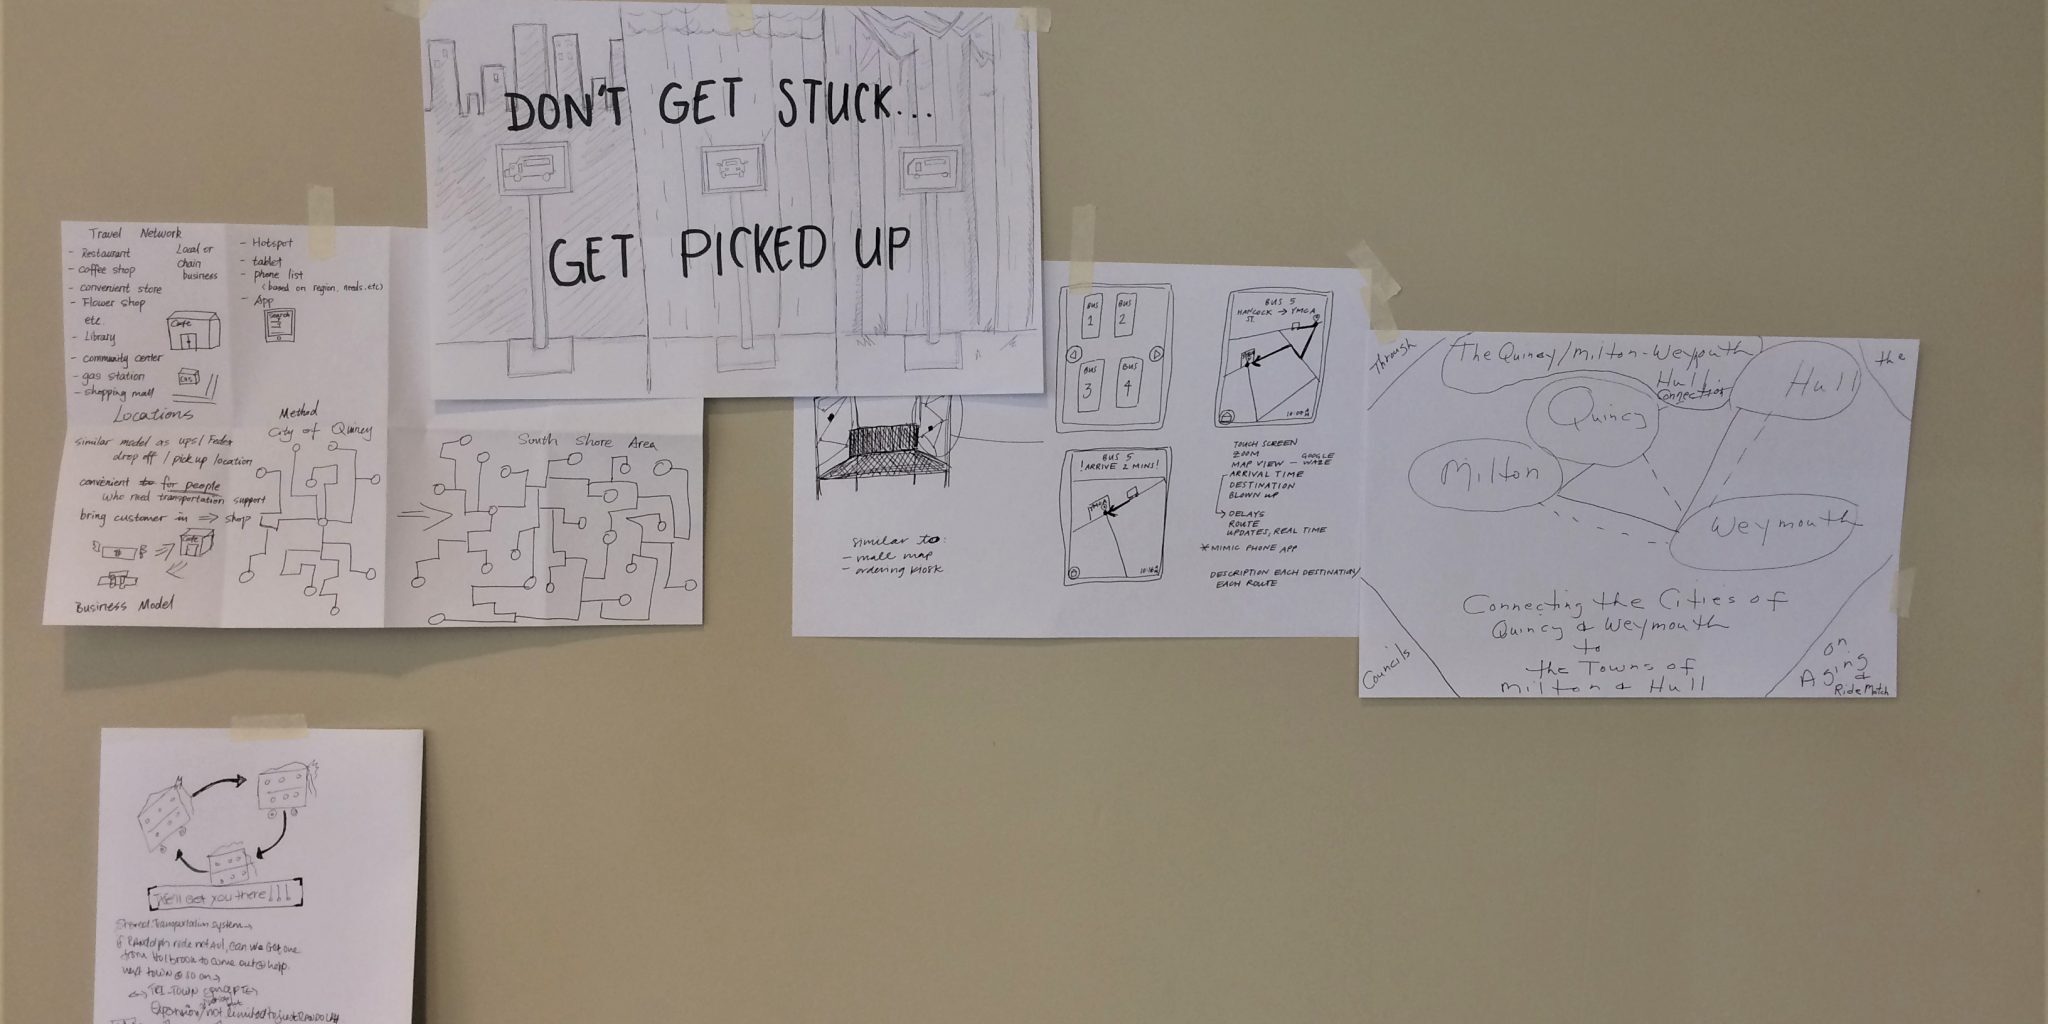 DON'T GET STUCK...
GET PICKED UP
Travel Network
- Restaurant
- coffee shop
- convenient store
- Flower shop
etc.
- Library
- community center
- gas station
- shopping mall
Local or
chain
business
Cafe
GAS
Locations
- Hotspot
- tablet
- phone list
(based on region, needs, etc)
- App
Search
Method
similar model as ups/ Fedex
drop off / pick up location
convenient to for people
who need transportation support
bring customer in ⇒ shop
Cafe
Business Model
City of Quincy
South Shore Area
similar to:
- mall map
- ordering kiosk
BUS 1
BUS 2
BUS 3
BUS 4
BUS 5
! ARRIVE 2 MINS!
BUS 5
HANCOCK ST. → YMCA
10:00
TOUCH SCREEN
ZOOM
MAP VIEW - GOOGLE WAZE
ARRIVAL TIME
DESTINATION
BLOWN UP
DELAYS
ROUTE
UPDATES, REAL TIME
* MIMIC PHONE APP
DESCRIPTION EACH DESTINATION/
EACH ROUTE
Through
the
The Quincy/Milton-Weymouth
Hull
Connection
Quincy
Hull
Milton
Weymouth
Connecting the Cities of
Quincy & Weymouth
to
the Towns of
Milton & Hull
Councils
on
Aging
&
Ride Match
We'll Get you there!!!
Shared Transportation system
if Randolph ride not avl, can we get one
from Holbrook to come out & help.
next town & so on
TRI-TOWN CONCEPT
Expansion/not limited to just RANDOLPH